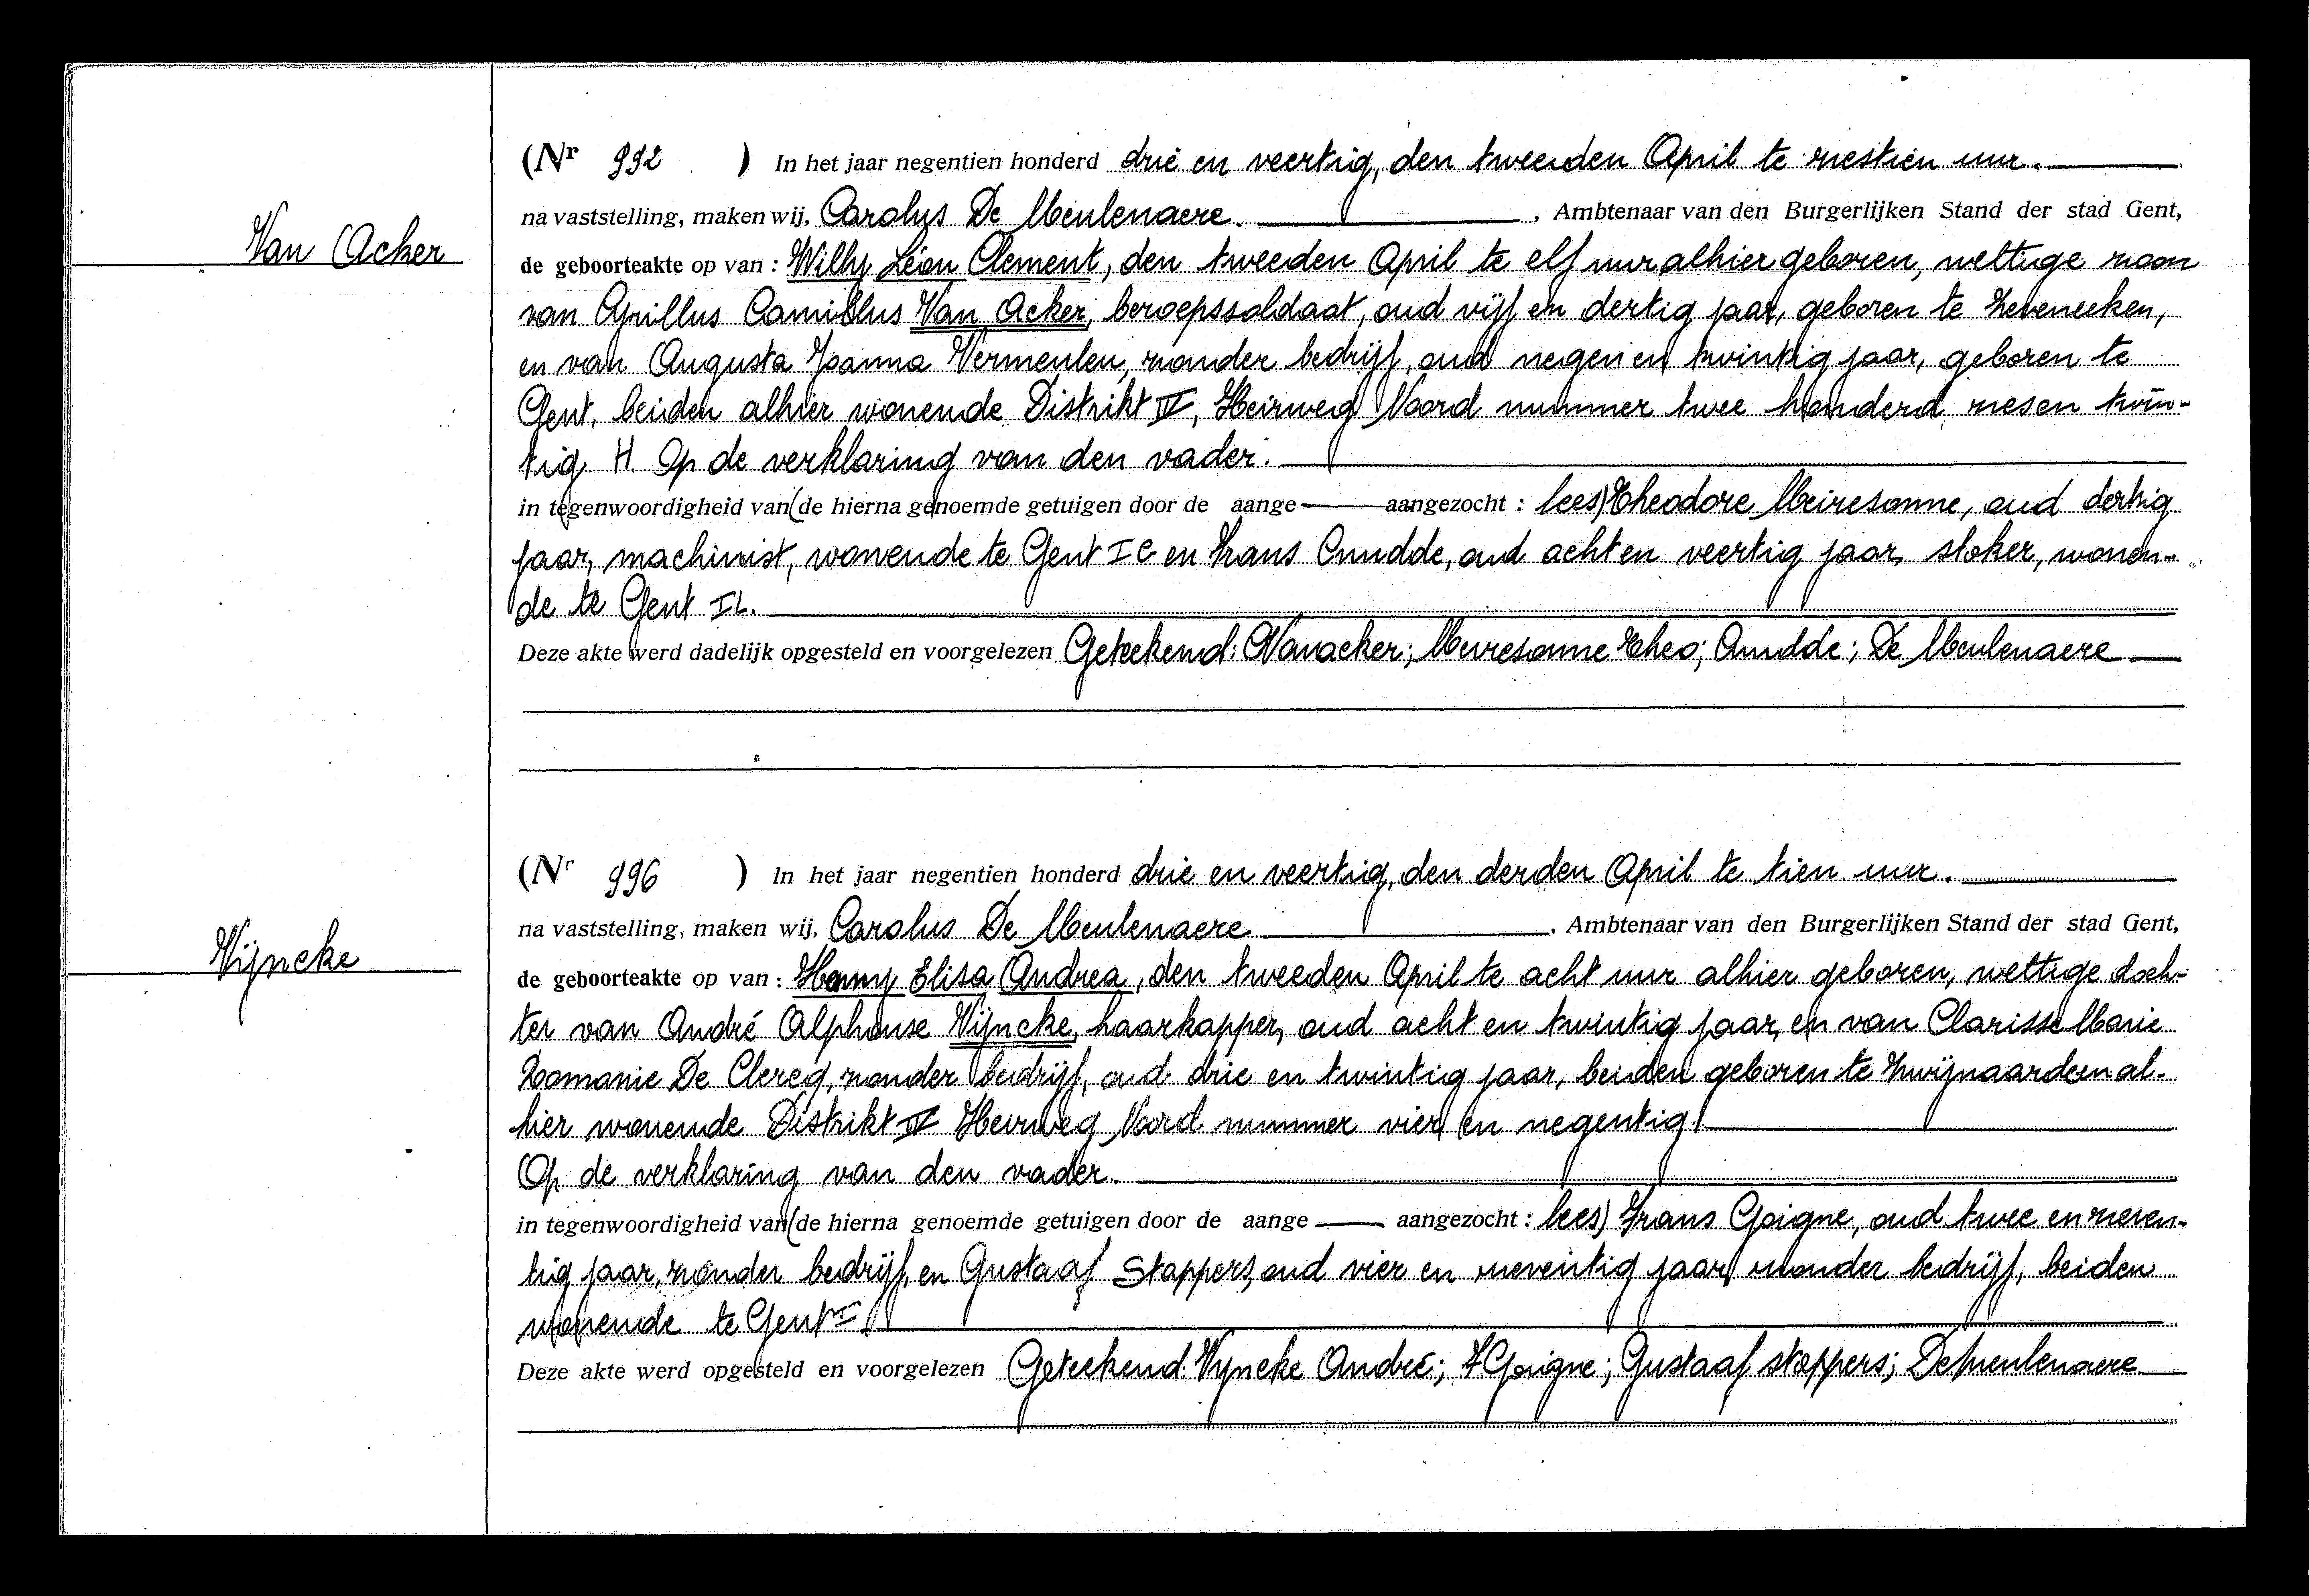 Van Acker
(Nr 992 ) In het jaar negentien honderd drie en veertig, den tweeden April te zestien uur.
na vaststelling, maken wij, Carolus De Meulenaere. , Ambtenaar van den Burgerlijken Stand der stad Gent,
de geboorteakte op van : Willy Léon Clement, den tweeden April te elf uur alhier geboren, wettige zoon
van Cyrillus Camillus Van Acker, beroepssoldaat, oud vijf en dertig jaar, geboren te Zeveneeken,
en van Augusta Joanna Vermeulen, zonder bedrijf, oud negen en twintig jaar, geboren te
Gent, beiden alhier wonende Distrikt IV, Heirweg Noord nummer twee honderd zes en twin-
tig H Op de verklaring van den vader.
in tegenwoordigheid van (de hierna genoemde getuigen door de aange aangezocht : lees) Theodore Meiresonne, oud dertig
jaar, machinist, wonende te Gent I C en Frans Cnudde, oud acht en veertig jaar, stoker, wonen-
de te Gent IL.
Deze akte werd dadelijk opgesteld en voorgelezen Geteekend: Vanacker; Meiresonne Theo; Cnudde; De Meulenaere
Vijncke
(Nr 996 ) In het jaar negentien honderd drie en veertig, den derden April te tien uur.
na vaststelling, maken wij, Carolus De Meulenaere , Ambtenaar van den Burgerlijken Stand der stad Gent,
de geboorteakte op van : Henny Elisa Andrea, den tweeden April te acht uur alhier geboren, wettige doch-
ter van André Alphonse Vijncke, haarkapper, oud acht en twintig jaar, en van Clarisse Marie
Romanie De Clercq, zonder bedrijf, oud drie en twintig jaar, beiden geboren te Zwijnaarde en al-
hier wonende Distrikt IV Heirweg Noord nummer vier en negentig.
Op de verklaring van den vader.
in tegenwoordigheid van (de hierna genoemde getuigen door de aange aangezocht : lees) Frans Goigne, oud twee en zeven-
tig jaar, zonder bedrijf, en Gustaaf Stappers, oud vier en zeventig jaar, zonder bedrijf, beiden
wonende te Gent I.
Deze akte werd opgesteld en voorgelezen Geteekend: Vyncke André; F Goigne; Gustaaf stappers; De Meulenaere